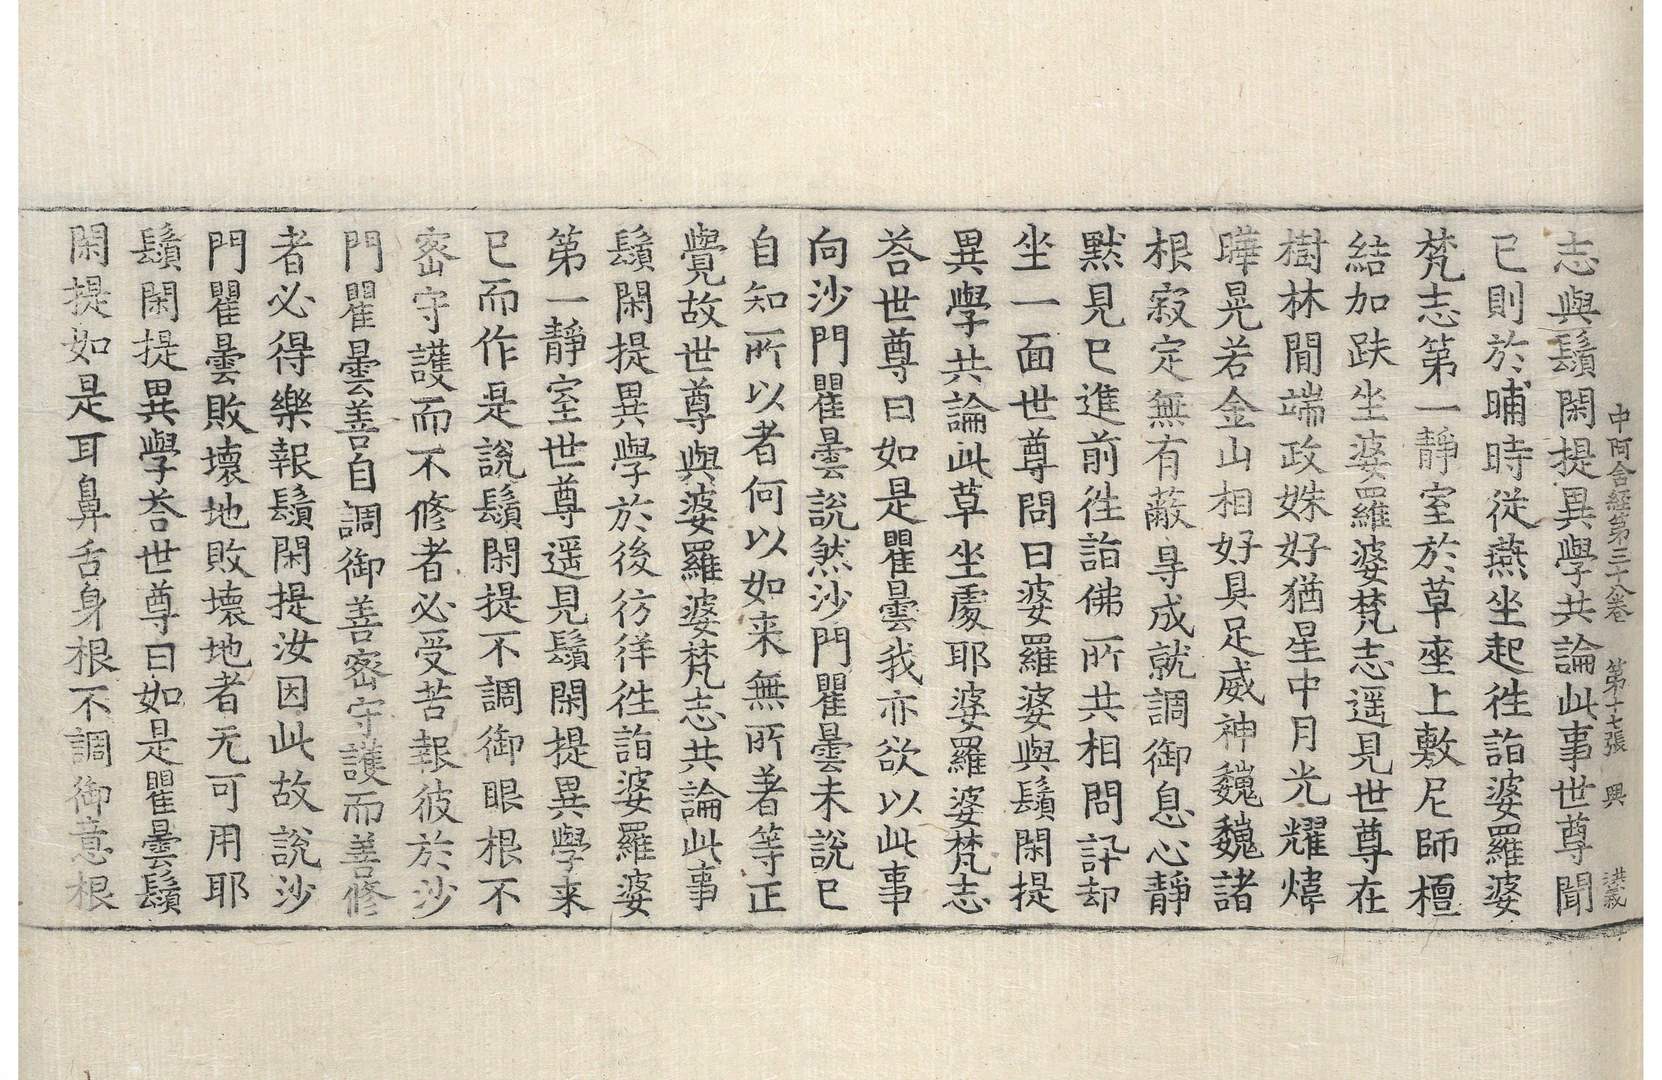 中阿含經第三十八卷 第十七張 興 洪義
志與鬚閑提異學共論此事世尊聞
已則於晡時從燕坐起徃詣婆羅婆
梵志第一靜室於草座上敷尼師檀
結加趺坐婆羅婆梵志遥見世尊在
樹林閒端政姝好猶星中月光耀煒
曄晃若金山相好具足威神巍巍諸
根寂定無有蔽㝵成就調御息心靜
默見已進前徃詣佛所共相問訊却
坐一面世尊問曰婆羅婆與鬚閑提
異學共論此草坐處耶婆羅婆梵志
荅世尊曰如是瞿曇我亦欲以此事
向沙門瞿曇說然沙門瞿曇未說已
自知所以者何以如来無所著等正
覺故世尊與婆羅婆梵志共論此事
鬚閑提異學於後彷徉徃詣婆羅婆
第一靜室世尊遥見鬚閑提異學来
已而作是說鬚閑提不調御眼根不
密守護而不修者必受苦報彼於沙
門瞿曇善自調御善密守護而善修
者必得樂報鬚閑提汝因此故說沙
門瞿曇敗壞地敗壞地者无可用耶
鬚閑提異學荅世尊曰如是瞿曇鬚
閑提如是耳鼻舌身根不調御意根